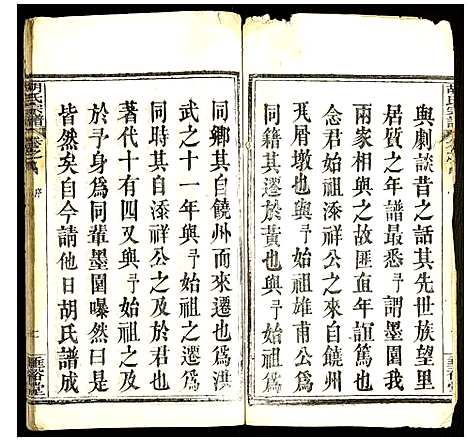 與劇談昔之話其先世族望里
居質之年譜最悉予謂墨園我
兩家相與之故匪直年誼篤也
念君始祖添祥公之自饒州
瓦屑墩也與予始祖雄甫公為
同籍其遷於黃也與
同鄉其自饒州而來遷也為洪
武之十一年與予始祖之遷為
同時其自添祥公之及於君也
著代十有四又與予始祖之及
於予身為同輩墨園曝然曰與
皆然矣自今請他日胡氏譜成
胡氏宗譜
卷之
序